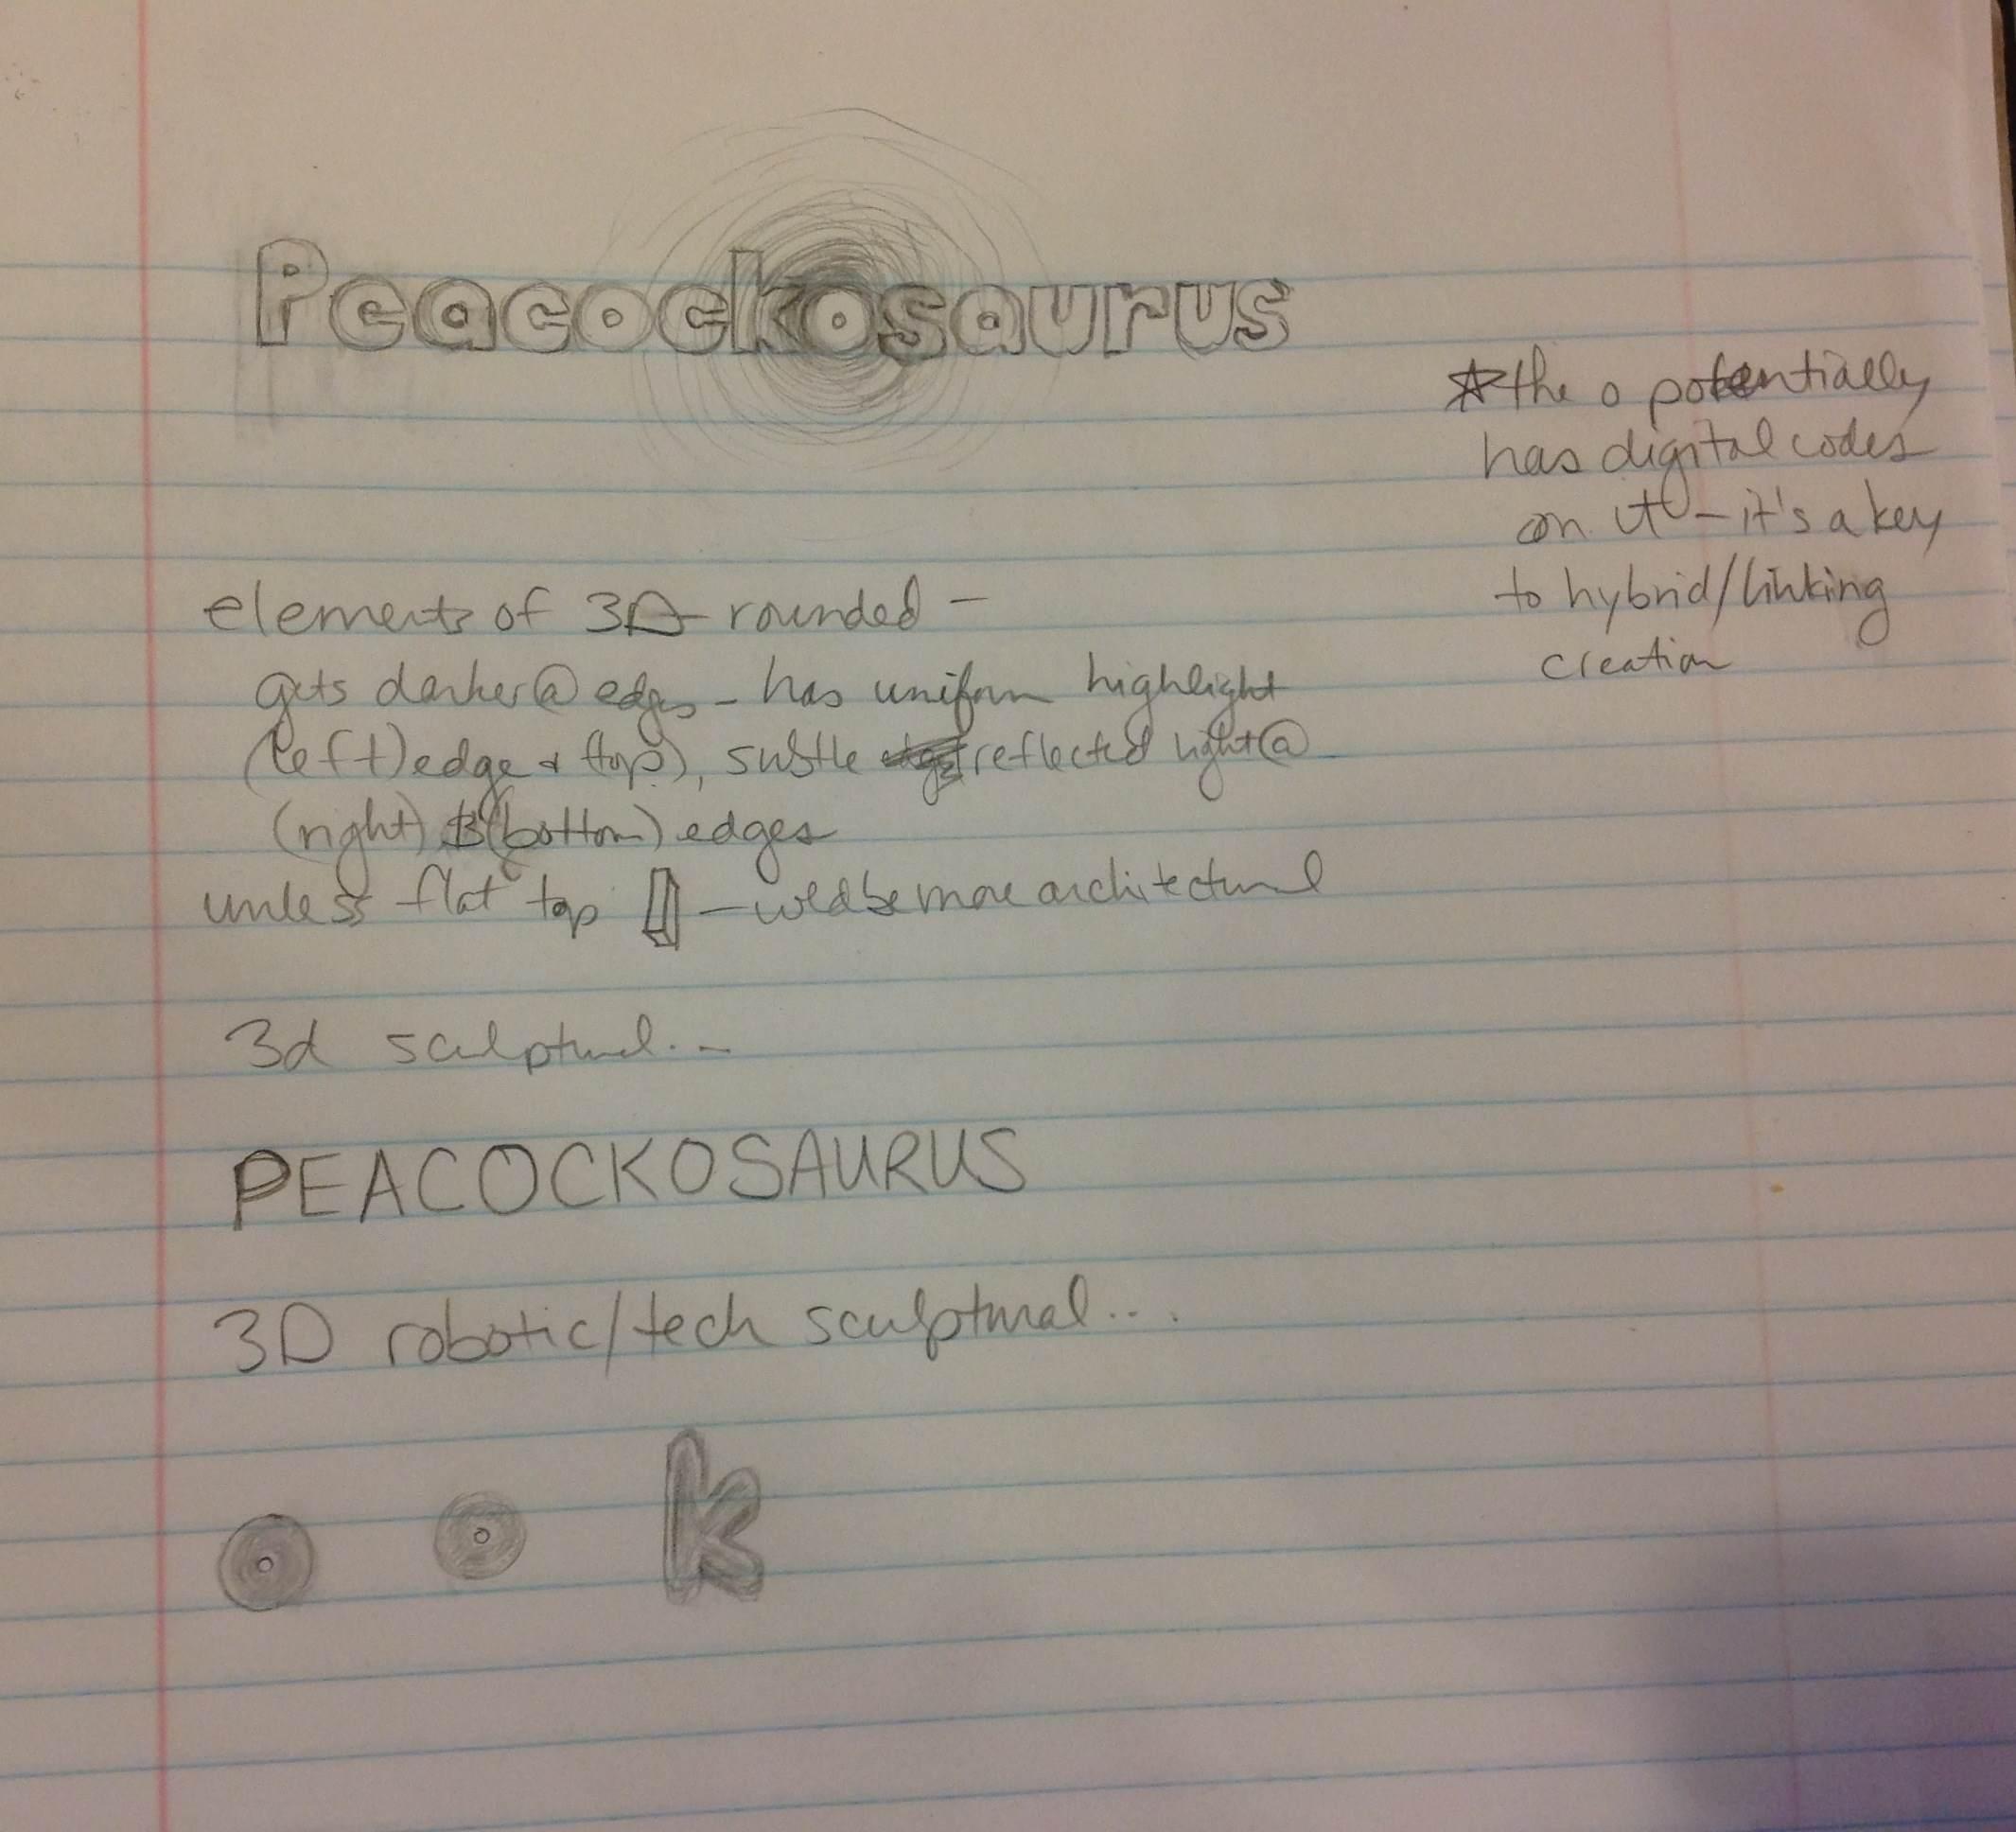 Peacockosaurus
☆ the o potentially
has digital codes
on it – it's a key
to hybrid/linking
creation
elements of 3D rounded –
gets darker @ edges – has uniform highlight
(left) edge & (top), subtle reflected light @
(right) & (bottom) edges
unless flat top – would be more architectural
3d sculptural...
PEACOCKOSAURUS
3D robotic/tech sculptural...
k